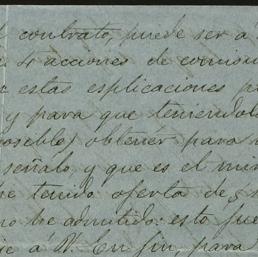 contrato, puede ser a
4 acciones de comisi
estas esplicaciones p
y para que teniendol
posible) obtener para
señalo y que es el mi
he tenido oferta de
no he admitido: esto pue
a V. En fin, para